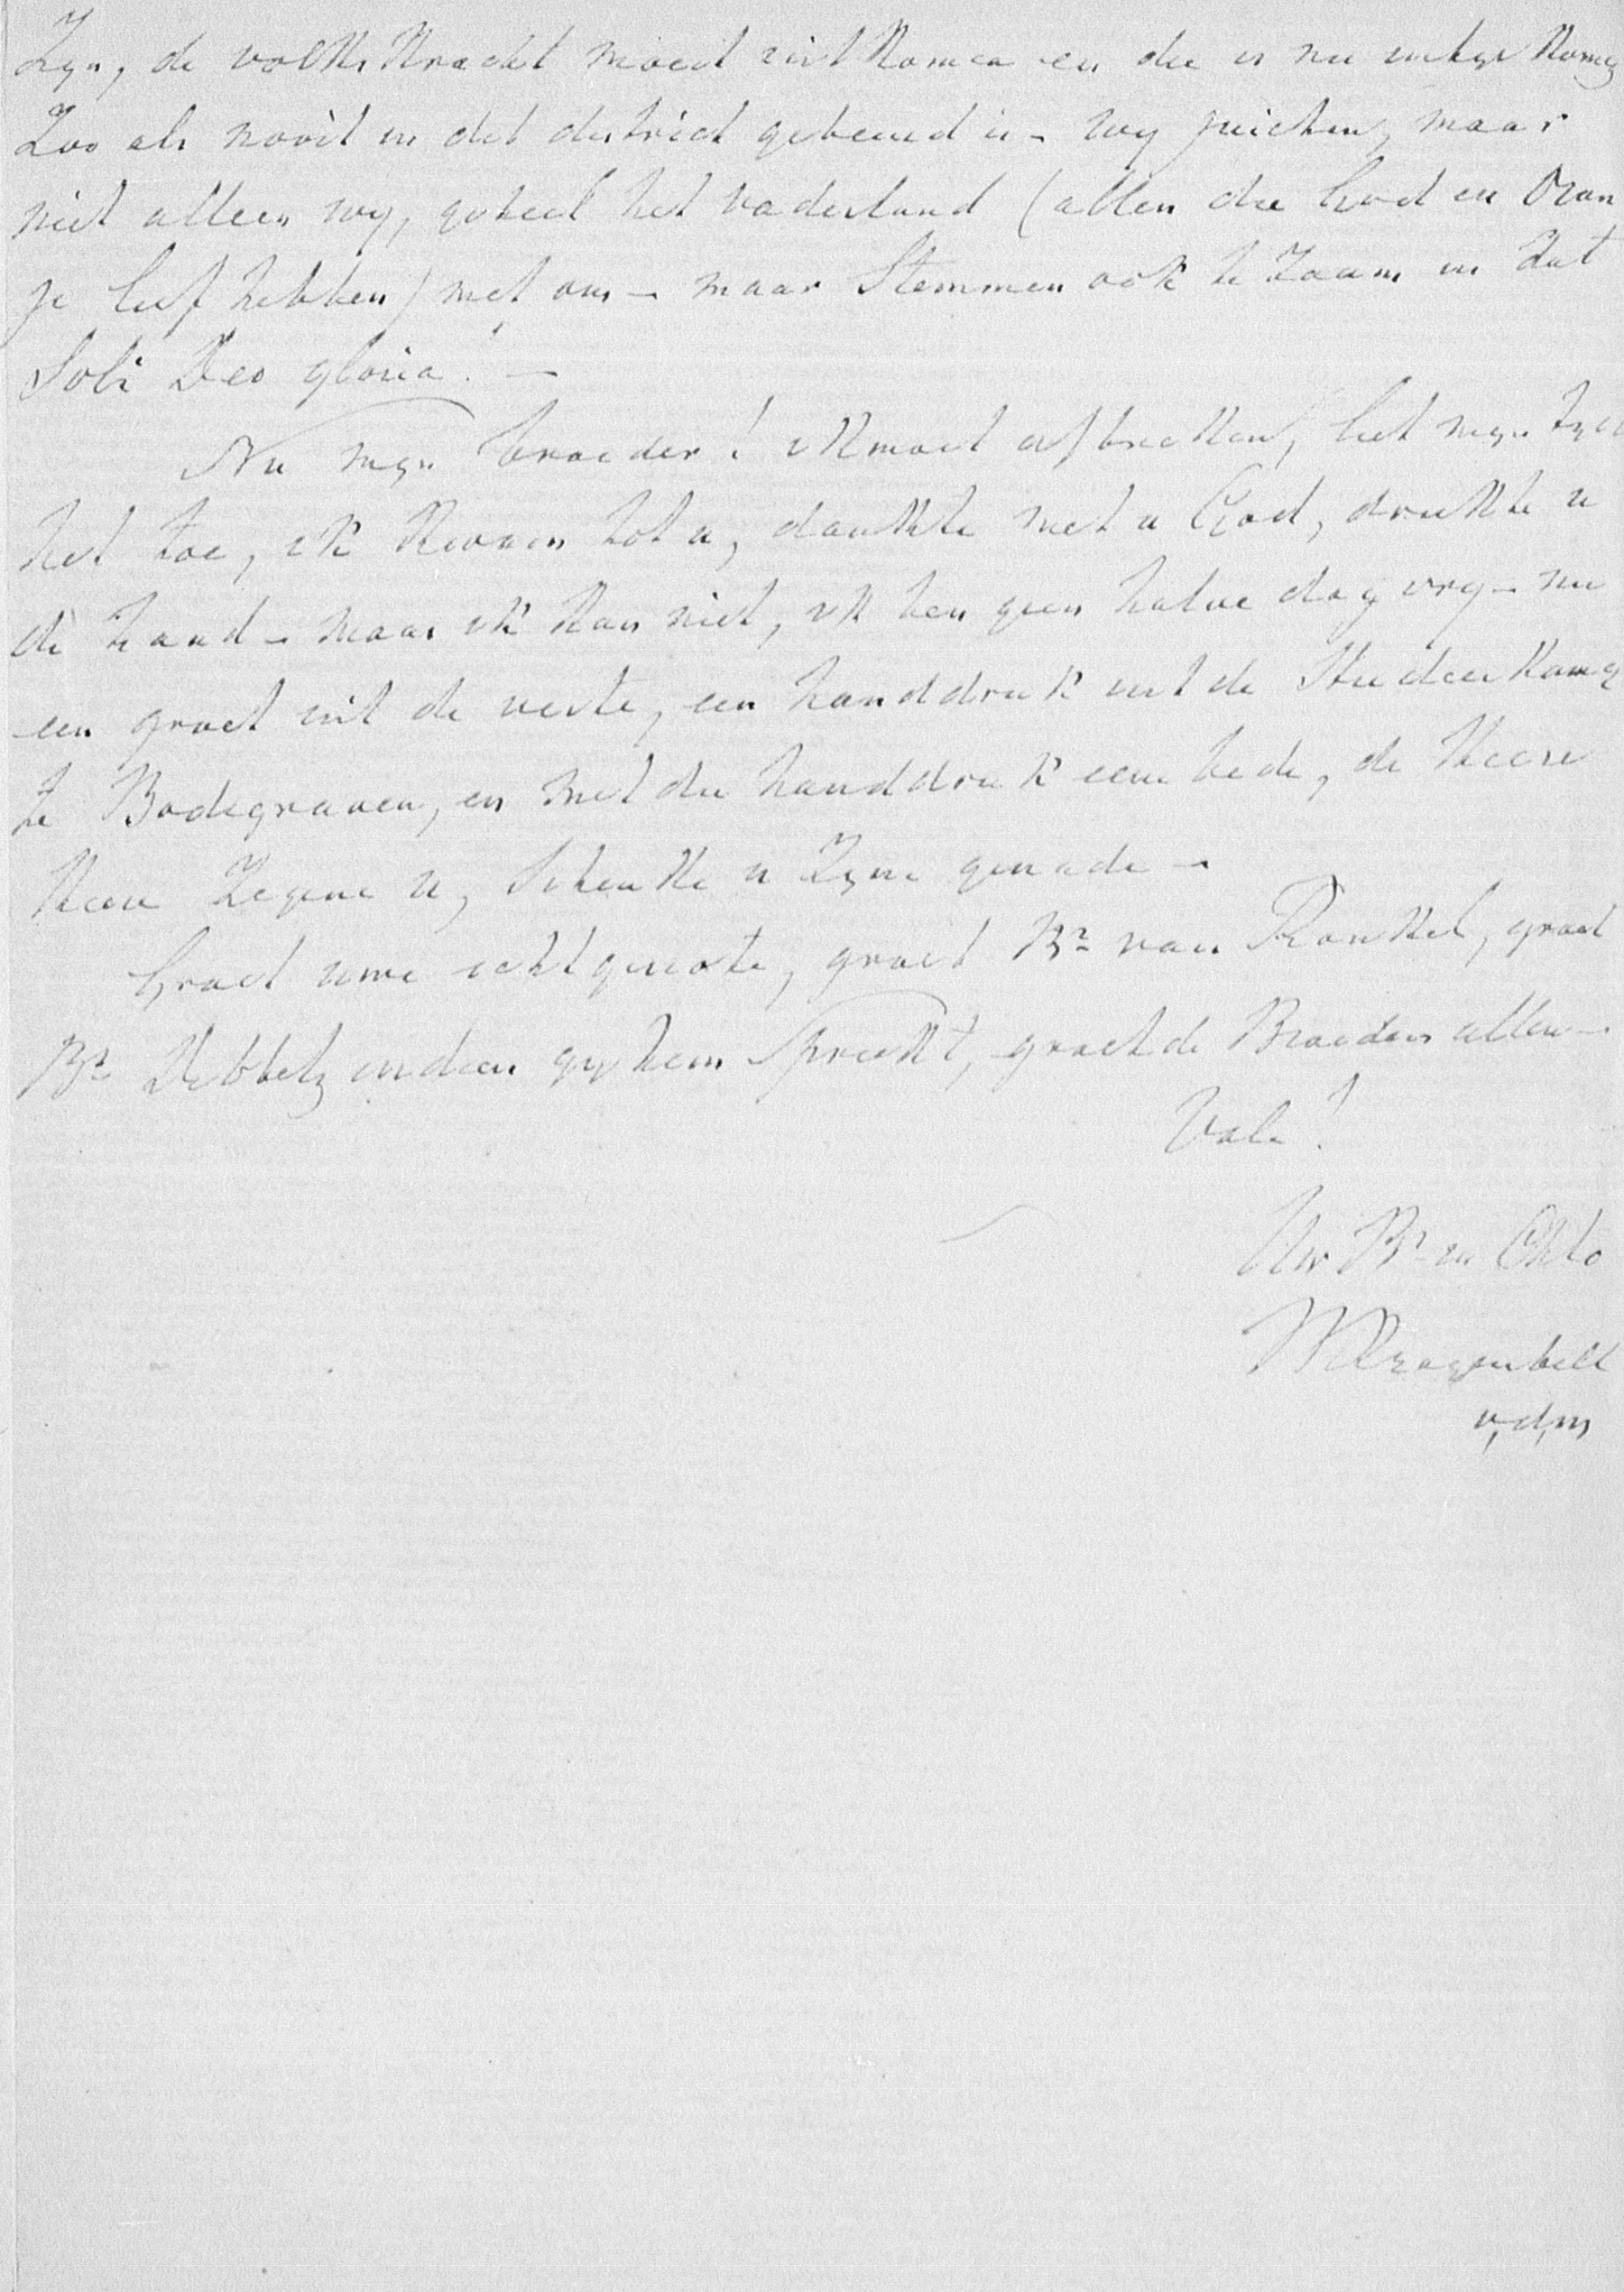 Zyn, de volkskracht moest uitkomen en die is nu uitgekomen
Zoo als nooit in dit district gebeurd is – wy juichen, maar
niet alleen wy, geheel het vaderland (allen die God en Oran
je lief hebben) met ons – maar Stemmen ook te Zaam in dat
Soli Deo gloria! –
Nu myn broeder! ik moet afbreken, liet myn tyd
het toe, ik kwam tot u, dankte met u God, drukte u
de hand – maar ik kan niet, ik ben geen halve dag vry – nu
een groet uit de verte, een handdruk uit de Studeerkamer
te Bodegraven, en met die handdruk eene bede, de Heere
Heere Zegene u, Schenke u Zyne genade –
Groet uwe echtgenoote, groet Br van Ronkel, groet
Br indien gy hem Spreekt, groet de Broeders allen –
Vale!
Uw Br in Chto
v,d,m